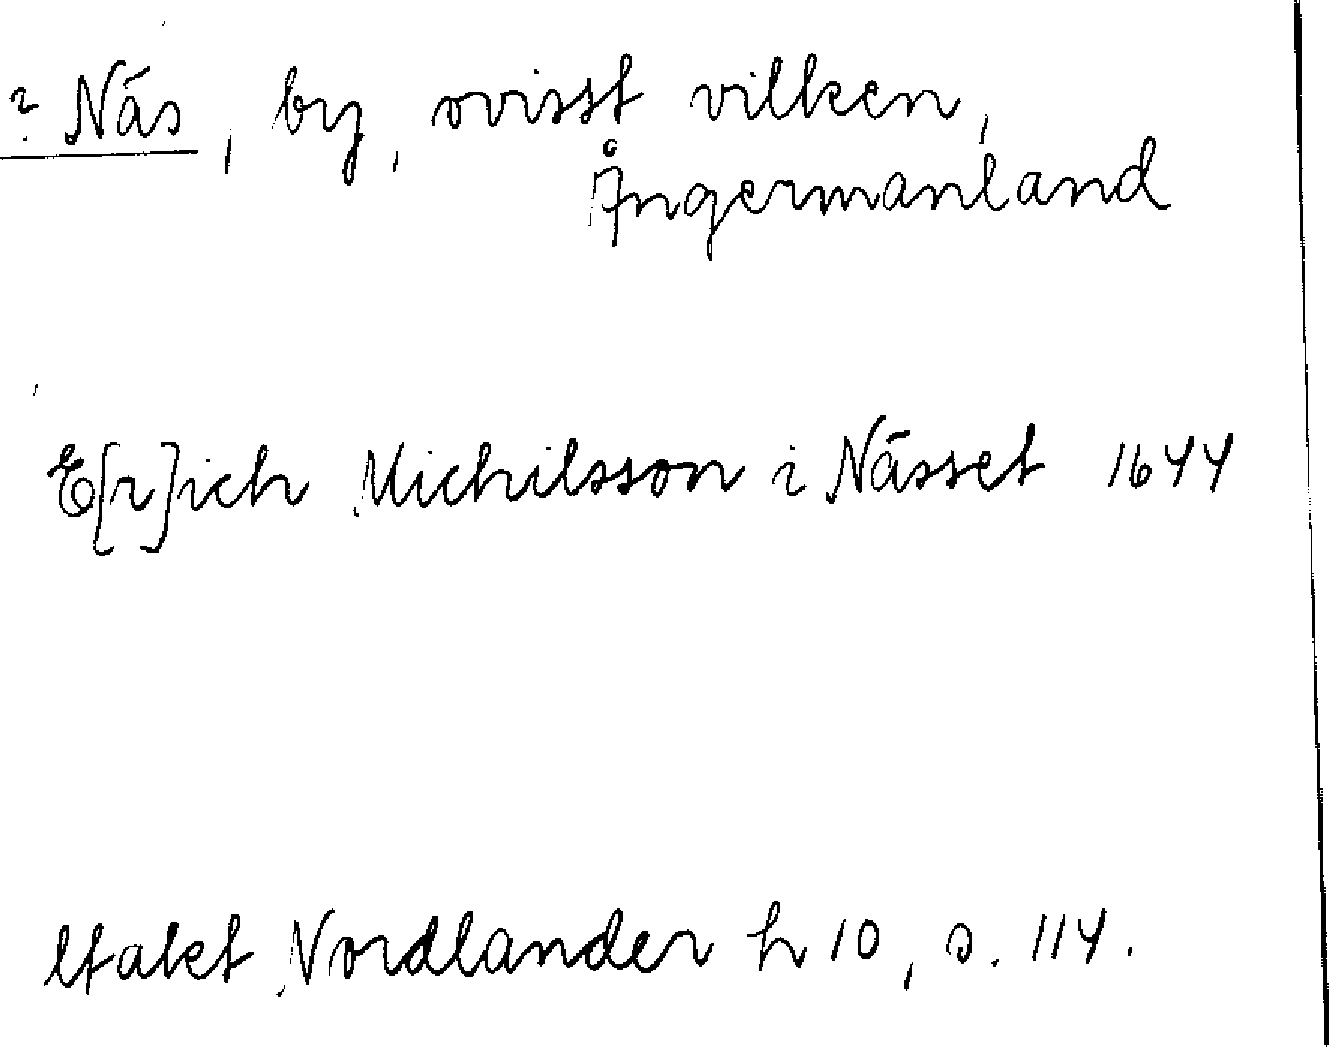 ? Näs, by, ovisst vilken,
Ångermanland
E[r]ich Michilsson i Nässet 1644
Nordlander h 10, s. 114.